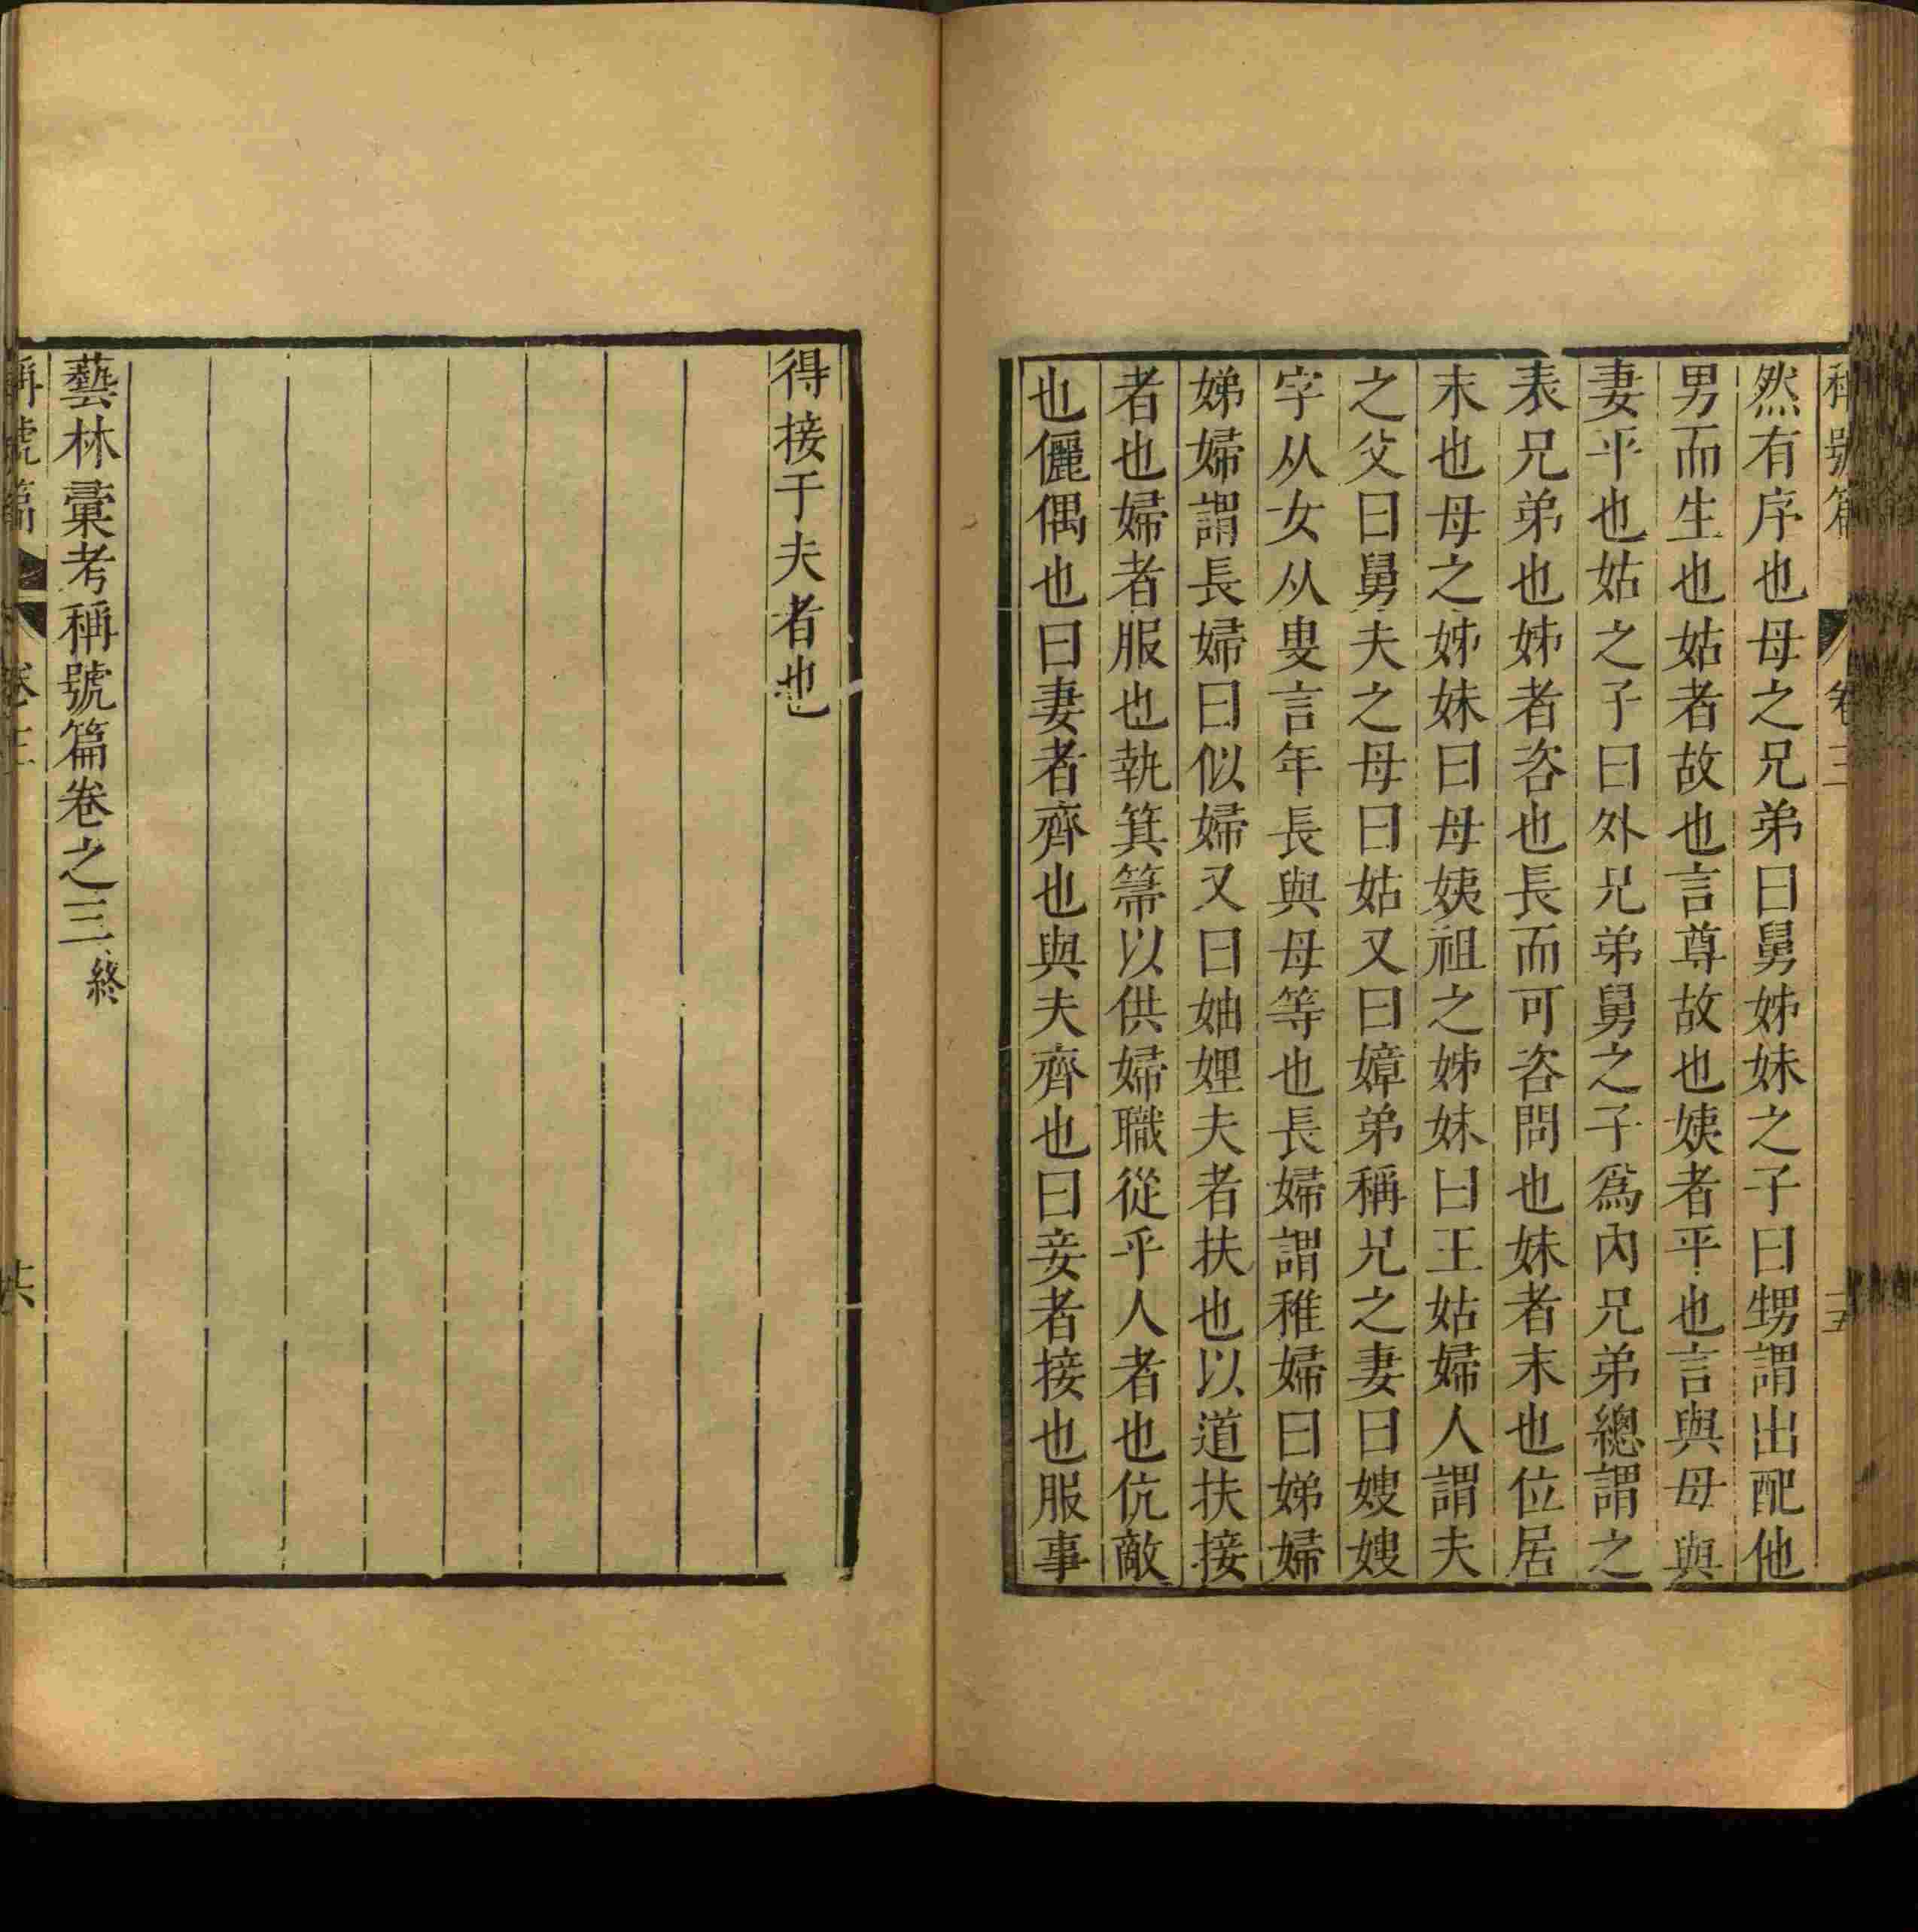 稱號篇 卷三 二五
然有序也母之兄弟曰舅姊妹之子曰甥謂出配他
男而生也姑者故也言尊故也姨者平也言與母與
妻平也姑之子曰外兄弟舅之子爲內兄弟總謂之
表兄弟也姊者咨也長而可咨問也妹者末也位居
末也母之姊妹曰母姨祖之姊妹曰王姑婦人謂夫
之父曰舅夫之母曰姑又曰嫜弟稱兄之妻曰嫂嫂
字从女从叟言年長與母等也長婦謂稚婦曰娣婦
娣婦謂長婦曰似婦又曰妯娌夫者扶也以道扶接
者也婦者服也執箕箒以供婦職從乎人者也伉敵
也儷偶也曰妻者齊也與夫齊也曰妾者接也服事
得接于夫者也
藝林彙考稱號篇卷之三終
稱號篇 卷三